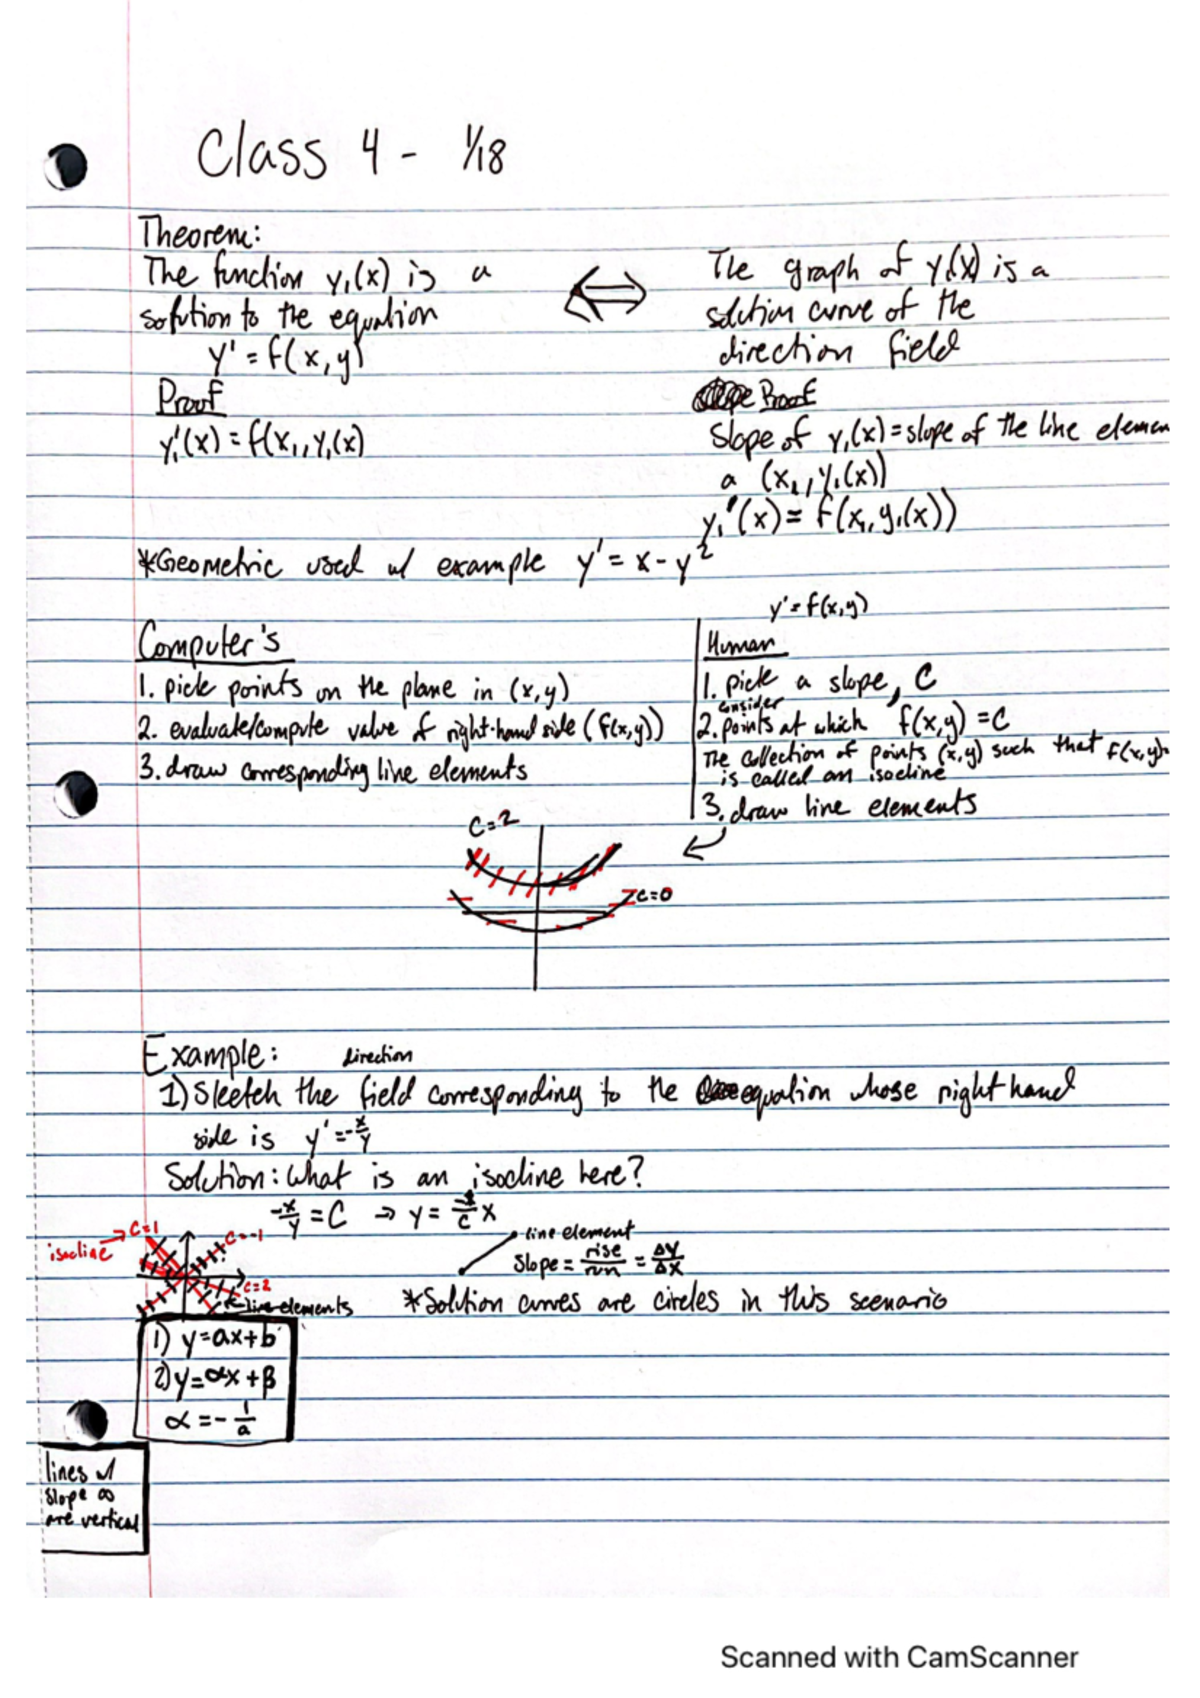 Class 4 - 1/18
Theorem:
The function y₁(x) is a
solution to the equation
y' = f(x,y)
⇔
The graph of y₁(x) is a
solution curve of the
direction field
Proof
y₁'(x) = f(x₁,y₁(x)
Proof
Slope of y₁(x) = slope of the line elemen
a (x₁,y₁(x))
y₁'(x) = f(x₁,y₁(x))
*Geometric used w/ example y' = x - y²
Computer's
1. pick points on the plane in (x,y)
2. evaluate/compute value of right-hand side (f(x,y))
3. draw corresponding line elements
y' = f(x,y)
Human
1. pick a slope, C
consider
2. points at which f(x,y) = C
The collection of points (x,y) such that f(x,y)=
is called an isocline
3. draw line elements
C=2
C=0
Example:
direction
1) Sketch the field corresponding to the equation whose right hand
side is y' = -x/y
Solution: What is an isocline here?
-x/y = C → y = -1/C x
isocline → C=1
C=-1
C=2
line elements
line element
Slope = rise/run = Δy/Δx
*Solution curves are circles in this scenario
1) y=ax+b
2) y=αx+β
α = -1/a
lines w/
slope ∞
are vertical
Scanned with CamScanner